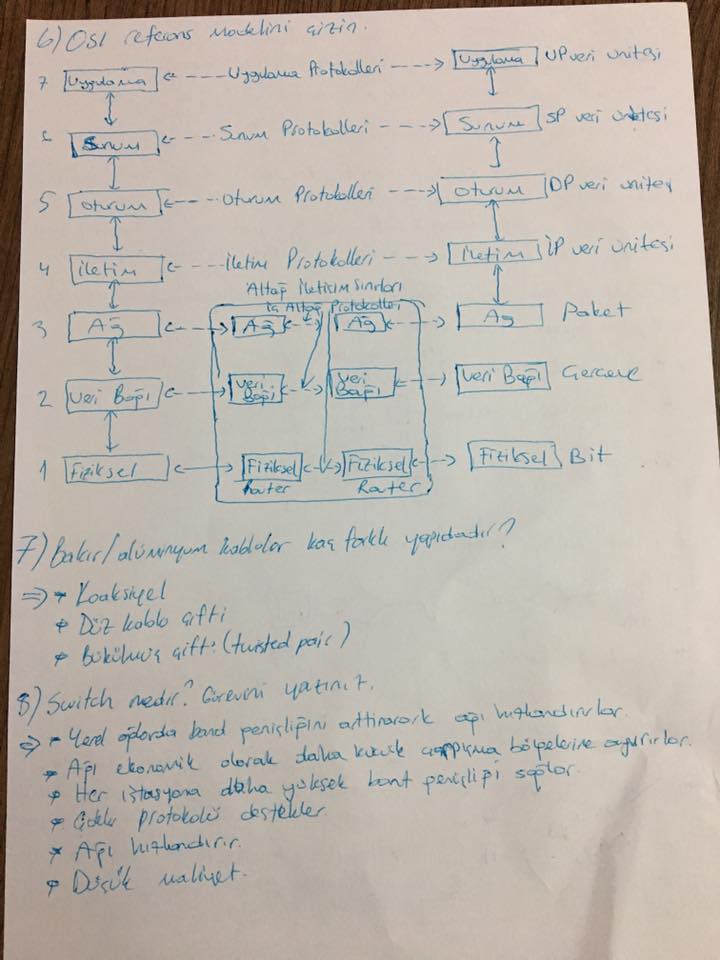 6) OSI referans modelini çizin.
7 Uygulama Uygulama Protokolleri Uygulama UP veri ünitesi
Sunum Sunum Protokolleri Sunum SP veri ünitesi
5 Oturum Oturum Protokolleri Oturum OP veri ünitesi
4 İletim İletim Protokolleri İletim İP veri ünitesi
Altağ İletişim Sınırları
İç Altağ Protokolleri
3 Ağ Ağ Ağ Ağ Paket
2 Veri Bağı Veri Bağı Veri Bağı Veri Bağı Çerçeve
1 Fiziksel Fiziksel Fiziksel Fiziksel Bit
Router Router
7) Bakır/alüminyum kablolar kaç farklı yapıdadır?
⇒ * Koaksiyel
* Düz kablo çifti
* Bükülmüş çift (twisted pair)
8) Switch nedir? Görevini yazınız.
⇒ * Yerel ağlarda band genişliğini arttırarak ağı hızlandırırlar.
* Ağı ekonomik olarak daha küçük çarpışma bölgelerine ayırırlar.
* Her istasyona daha yüksek bant genişliği sağlar.
* Çoklu protokolü destekler.
* Ağı hızlandırır.
* Düşük maliyet.